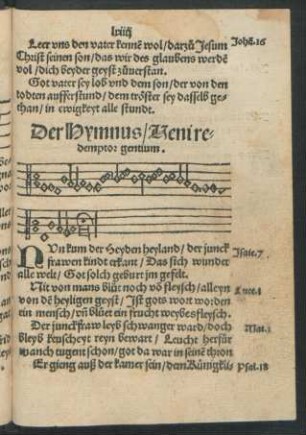 lxiiij
Leer vns den vater kennē wol / darzů Jesum
Johā.16
Christ seinen son / das wir des glaubens werdē
vol / dich beyder geyst zůuerstan.
Got vater sey lob vnd dem son / der von den
todten aufferstund / dem tröster sey dasselb ge-
than / in ewigkeyt alle stundt.
Der Hymnus / Veni re-
demptor gentium.
NVn kum der Heyden heyland / der junck
frawen kindt erkant / Das sich wunder
Isaie.7.
alle welt / Got solch geburt jm gestelt.
Nit von mans blůt noch vō fleysch / alleyn
von dē heyligen geyst / Ist gots wort worden
Luce.1
ein mensch / vñ blüet ein frucht weybesfleysch.
Der junckfraw leyb schwanger ward / doch
Mat.1
bleyb keuscheyt reyn bewart / Leucht herfür
manch tugent schon / got da war in seinē thron
Er gieng auß der kamer sein / dem Künigkli
Psal.18